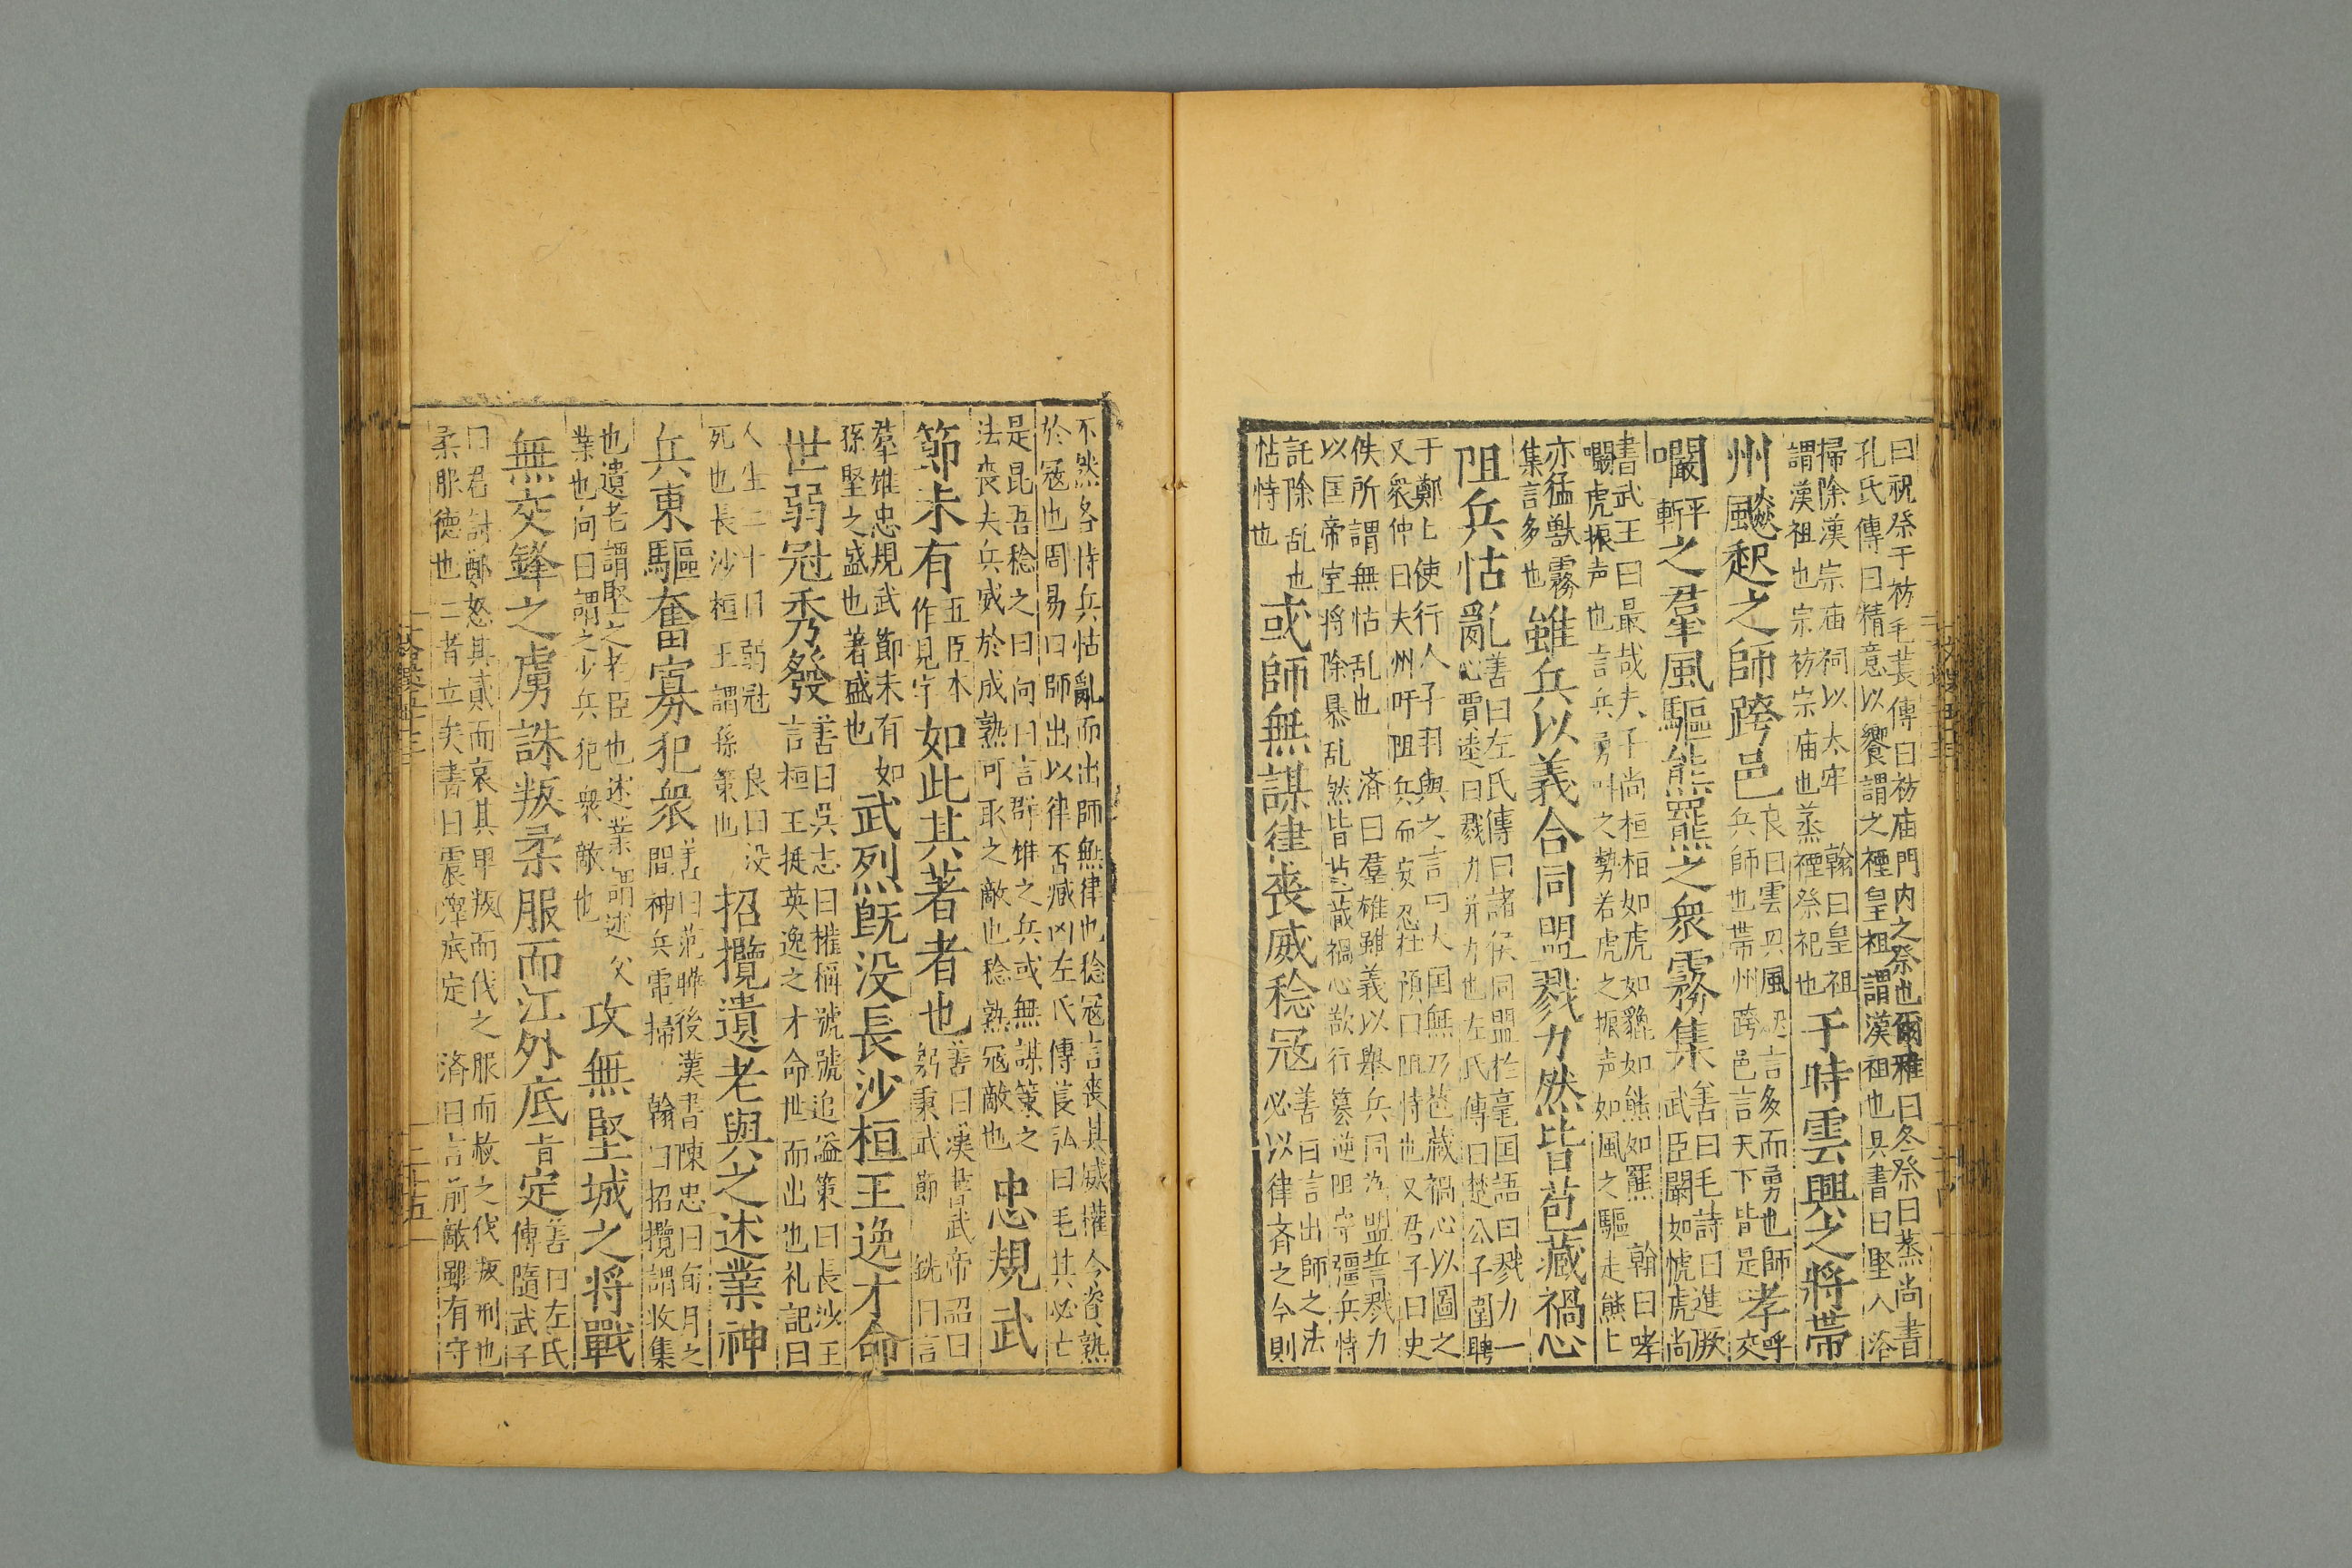 曰祝祭于祊毛萇傳曰祊庙門内之祭也爾雅曰冬祭曰蒸尚書
孔氏傳曰精意以饗謂之禋皇祖謂漢祖也吳書曰堅入洛
掃除漢宗庙祠以太牢 翰曰皇祖
謂漢祖也宗祊宗庙也蒸禋祭祀也
于時雲興之將帶
州飇起之師跨邑
良曰雲興風起言多而勇也師
兵師也帶州跨邑言天下皆是
哮呼交
嚙
平
之羣風驅熊羆之衆霧集
善曰毛詩曰進厥
武臣闞如虓虎尚
書武王曰最哉夫子尚桓桓如虎如貔如熊如羆 翰曰哮
嚙虎振声也言兵勇叫之勢若虎之振声如風之驅走熊上
亦猛獸霧
集言多也
雖兵以義合同盟戮力然皆苞藏禍心
阻兵怙亂
善曰左氏傳曰諸侯同盟於亳国語曰戮力一
心賈逵曰戮力并力也左氏傳曰楚公子圍聘
于鄭上使行人子羽與之言曰大国無乃苞藏禍心以圖之
又衆仲曰夫州吁阻兵而安忍杜預曰阻恃也又君子曰史
佚所謂無怙乱也 済曰羣雄雖義以舉兵同為盟誓戮力
以匡帝室將除暴乱然皆苞藏禍心欲行篡逆阻守彊兵恃
託除乱也
怙恃也
或師無謀律喪威稔寇
善曰言出師之法
必以律斉之今則
不然各恃兵怙亂而出師無律也稔寇言喪其威權令資熟
於寇也周易曰師出以律否臧凶左氏傳萇弘曰毛其必亡
是昆吾稔之曰向曰言群雄之兵或無謀策之
法喪夫兵威於成熟可取之敵也稔熟寇敵也
忠規武
節未有
五臣本
作見字
如此其著者也
善曰漢書武帝詔曰
躬秉武節 銑曰言
羣雄忠規武節未有如
孫堅之盛也著盛也
武烈旣没長沙桓王逸才命
世弱冠秀發
善曰吳志曰權稱號號追謚策曰長沙王
言桓王挺英逸之才命世而出也礼記曰
人生二十曰弱冠 良曰没
死也長沙桓王謂孫策也
招攬遺老與之述業神
兵東驅奮寡犯衆
善曰范曄後漢書陳忠曰旬月之
間神兵電掃 翰曰招攬謂收集
也遺老謂堅之老臣也述業謂述父
業也向曰謂之少兵犯衆敵也
攻無堅城之将戰
無交鋒之虜誅叛柔服而江外底㫖定
善曰左氏
傳隨武子
曰君討鄭怒其貳而哀其卑叛而伐之服而赦之伐叛刑也
柔服德也二者立矣書曰震澤底定 済曰言前敵雖有守